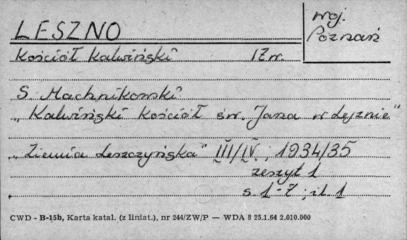 LESZNO
woj. Poznań
Kościół Kalwiński 17 w.
S. Machnikowski
„Kalwiński kościół św. Jana w Lesznie"
„Ziemia Leszczyńska" III/IV, 1934/35
zeszyt 1
s. 1-7; il. 1
CWD - B-15b, Karta katal. (z liniat.), nr 244/ZW/P — WDA 8 25.1.64 2.010.000